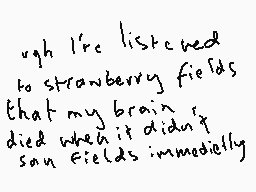 ugh I've listened
to strawberry fields
that my brain
died when it didn't
say fields immedietly